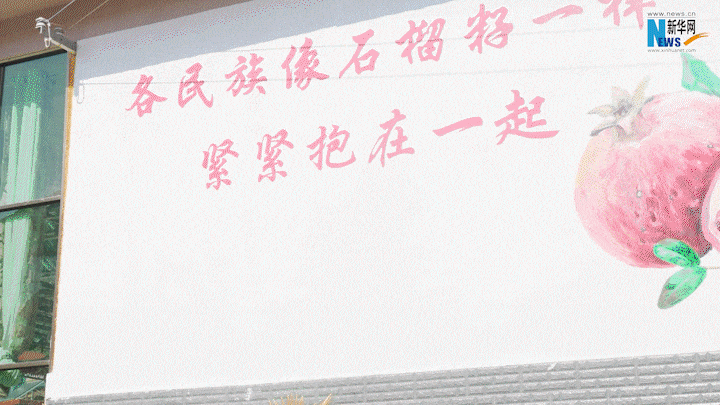 各民族像石榴籽一样
紧紧抱在一起
www.news.cn
新华网
NEWS
www.xinhuanet.com